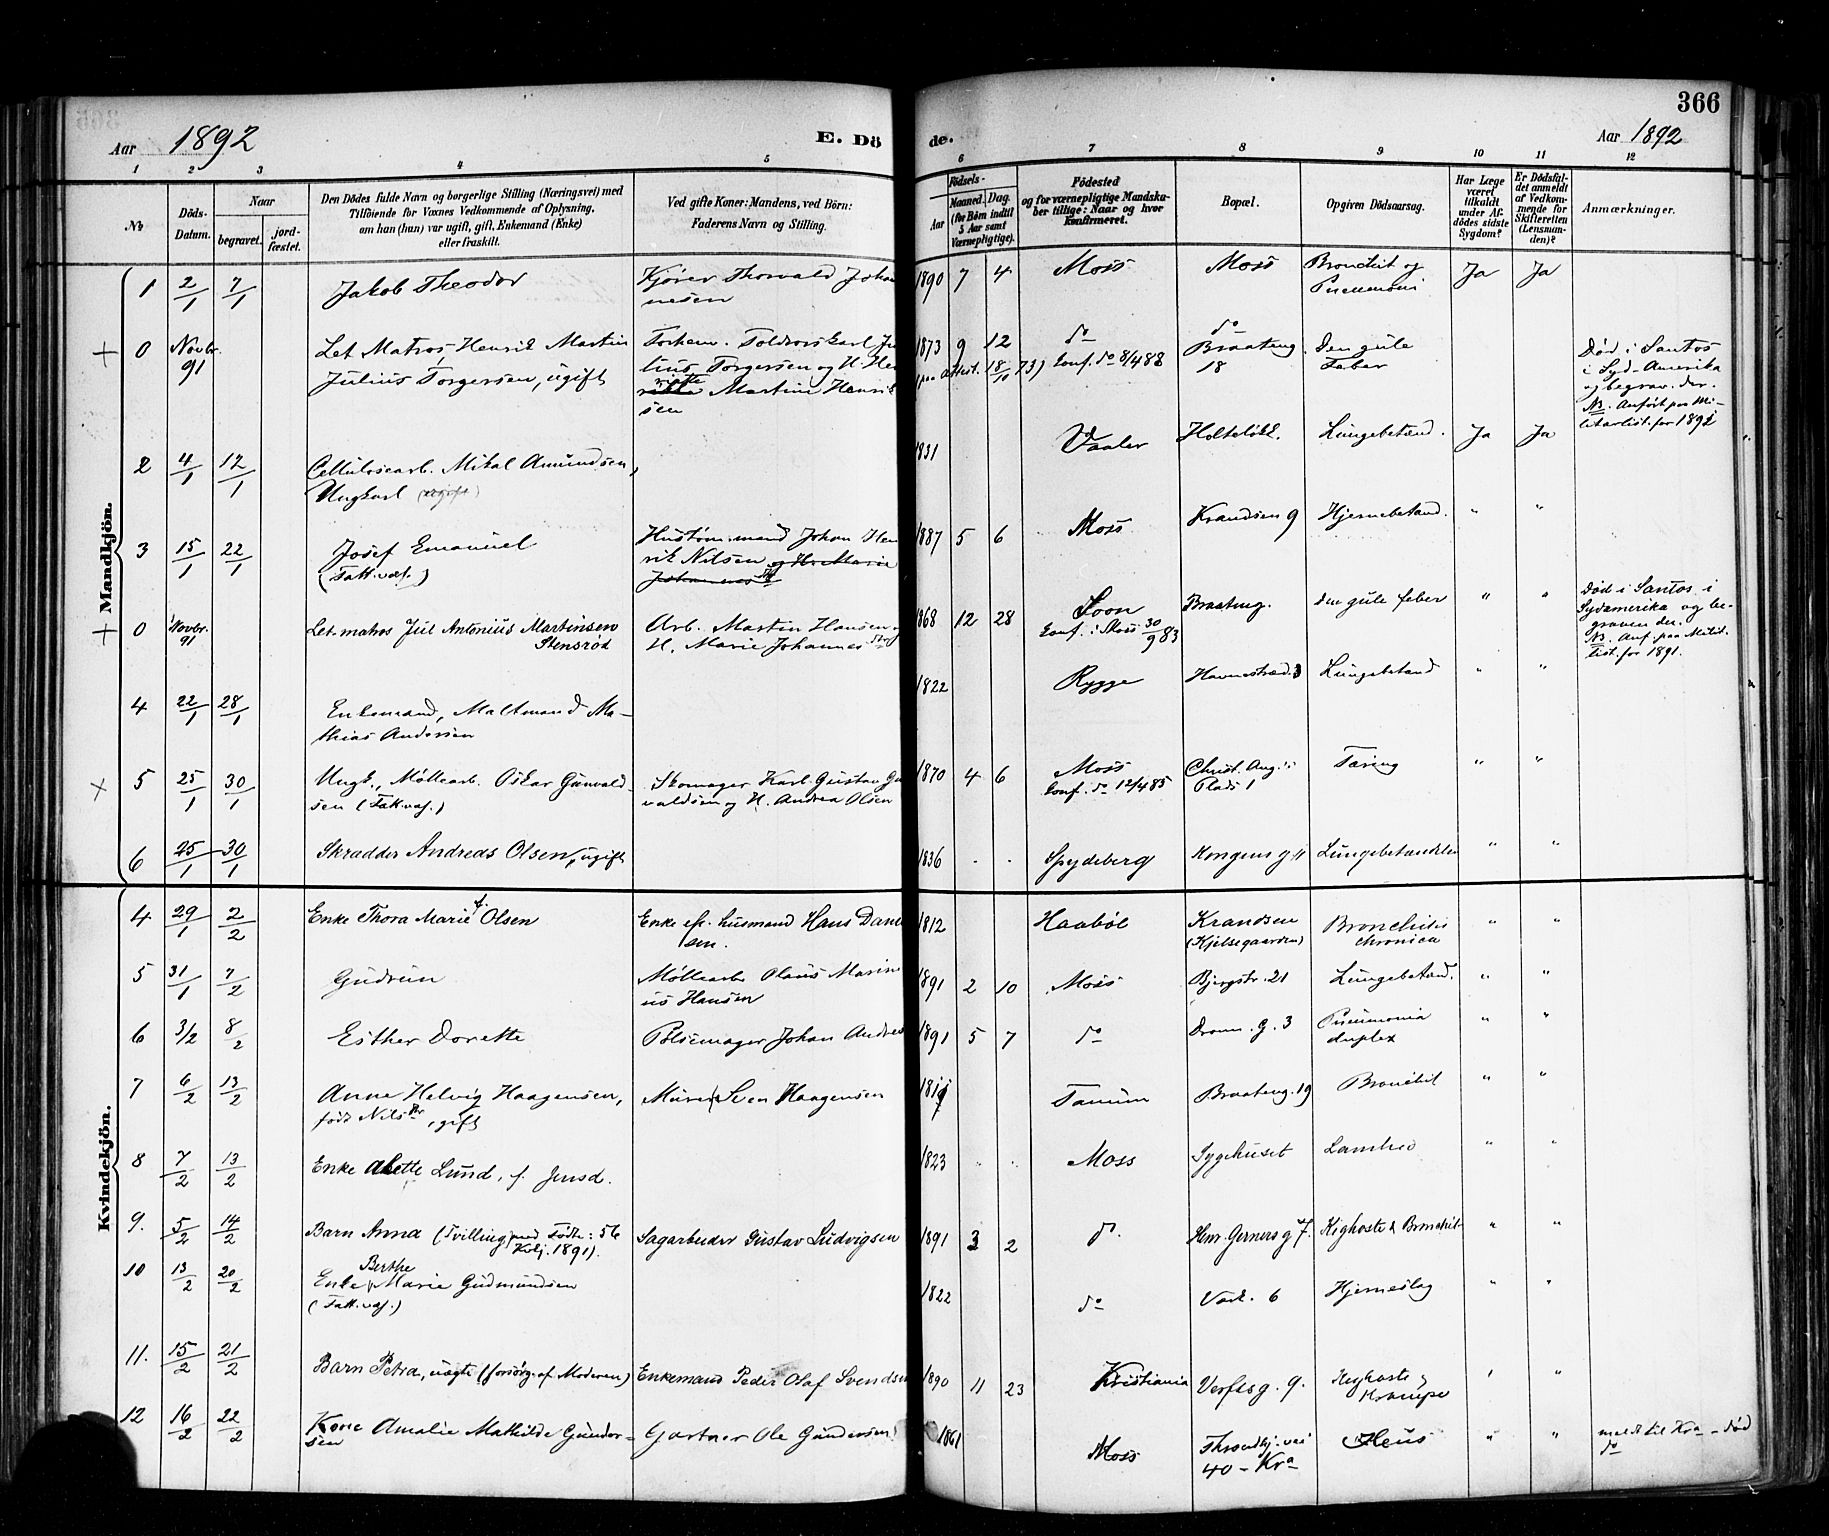 366
Aar 1892 E. Dö de. Aar 1892
1 2 3 4 5 6 7 8 9 10 11 12
No
Döds-Datum.
Naar
begravet.
jord-fæstet.
Den Dödes fulde Navn og borgerlige Stilling (Næringsvei) med
Tilföiende for Voxnes Vedkommende af Oplysning,
om han (hun) var ugift, gift, Enkemand (Enke)
eller fraskilt.
Ved gifte Koner: Mandens, ved Börn:
Faderens Navn og Stilling.
Födsels-
Aar
Maaned. Dag.
(for Börn indtil
5 Aar samt
Værnepligtige).
Födested
og for værnepligtige Mandska-
ber tillige: Naar og hvor
konfirmeret.
Bopæl.
Opgiven Dödsaarsag.
Har Læge
været
tilkaldt
under Af-
dödes sidste
Sygdom?
Er Dödsfal-
det anmeldt
af Vedkom-
mende for
Skifteretten
(Lensman-
den)?
Anmærkninger.
Mandkjön.
1 2/1 7/1 Jakob Theodor Kjører Thorvald Johan
nesen 1890 7 4 Moss Moss Bronchit og
Pneumoni Ja Ja
+ 0 Novbr. 91 Let Matros, Henrik Martin
Julius Torgersen, ugift
Forhen. Toldvorskarl Ju
lius Torgersen og H. Hen
riette Martine Henrik
sen
1873 9 12 do
(paa attest. 18/10 73) Conf. do 8/4 88
do
Braateng. 18
Den gule
Feber
Død i Santos
i Syd-Amerika
og begrav. der.
NB. Anført paa Mi-
litærlist. for 1892
2 4/1 12/1 Cellulosearb. Mikal Amundsen,
Ungkarl (ugift)
1831 Vaaler Holteløkk. Lungebetænd. Ja Ja
3 15/1 22/1 Josef Emanuel
(Fatt.væs.)
Hustømmermand Johan Hen
rik Nilsen og H. Marie
Johannesdtr
1887 5 6 Moss Krandsen 9 Hjernebetænd. " "
+ 0 Novbr. 91 Let. matros Jul Antonius Martinsen
Stensrød
Arb. Martin Hansen og
H. Marie Johannesdtr
1868 12 28 Soon
Conf. i Moss 30/9 83
Braateng. den gule feber " "
Død i Santos i
Sydamerika og be-
graven der.
NB. Anf. paa Milit.
list. for 1891.
4 22/1 28/1 Enkemand, Maltmand Ma-
thias Andersen
1822 Rygge Havnestræd. 3 Lungebetænd " "
+ 5 25/1 30/1 Ungk., Møllearb. Oskar Gunvald-
sen (Fatt.væs.)
Skomager Karl Gustav Gun
valdsen og H. Andrea Olsen
1870 4 6 Moss
Conf. do 12/4 85
Christ. Aug.'s
Plads 1
Tæring " "
6 25/1 30/1 Skrædder Andreas Olsen, ugift
1836 . . Spydeberg Kongens g. 11 Lungebetændelse " "
Kvindekjön.
4 29/1 2/2 Enke Thora Marie Olsen
Enke eft. husmand Hans Daniel
sen.
1812 Haabøl Krandsen
(Kjelsegaarden)
Bronchitis
chronica " "
5 31/1 7/2 Gudrun
Møllearb. Olaus Marin
us Hansen
1891 2 10 Moss Bjergstr. 21 Lungebetænd. " "
6 3/2 8/2 Esther Dorette Pølsemager Johan Andres
1891 5 7 do Dronn. G. 3 Pneumonia
duplex " "
7 6/2 13/2 Anne Helvig Haagensen,
født Nilsdtr, gift
Murer Sven Haagensen
Tanum Braateng. 19 Bronchit " "
8 7/2 13/2 Enke Alette Lund, f. Jensd.
1823 " " Moss Sygehuset Lamhed " "
9. 5/2 14/2 Barn Anna (Tvilling med Fødte: 56
Kvkj. 1891).
Sagarbeider Gustav Ludvigsen
1891 3 2 do. Henr. Gerners g. 7. Kighoste & Bronchit " "
10 13/2 20/2 Enke Berthe Marie Gudmundsen
(Fatt.væs.)
1822 do Værl. 6 Hjerneslag " "
11. 15/2 21/2 Barn Petra, uægte (forsörg. af Moderen) Enkemand Peder Olaf Svendsen
1890 11 23 Kristiania Verfts g. 9. Kighoste &
Krampe " "
12 16/2 22/2 Kone Amalie Mathilde Gunder-
sen
Gartner Ole Gundersen
1861 Moss Throndhj. vei
40 - Kra
Ileus " "
meldt til Kra - død
do